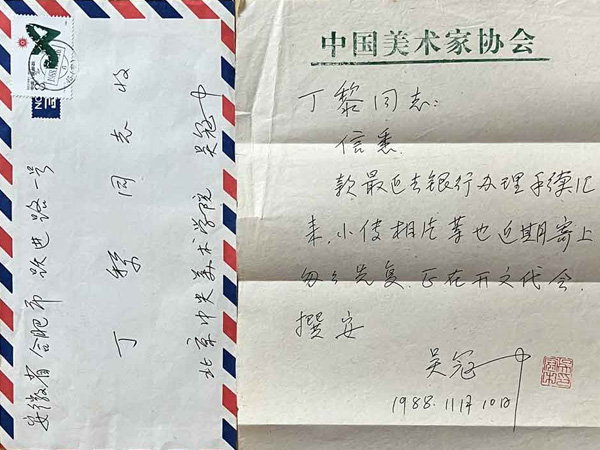 安徽省合肥市跃进路一号
丁黎同志收
北京中央美术学院 吴冠中
中国美术家协会
丁黎同志:
信悉.
款最近去银行办理手续汇
来,小传相片等也近期寄上
匆匆先复,正在开文代会.
撰安
吴冠中
1988.11月10日